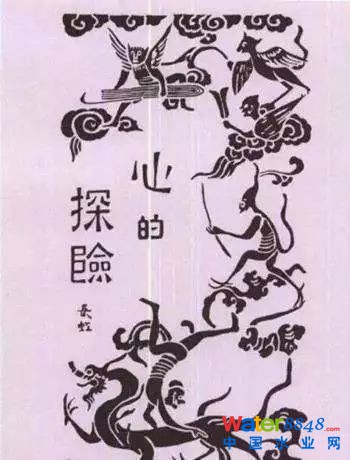 心的
探險
長虹
Water8848.com
中国水业网